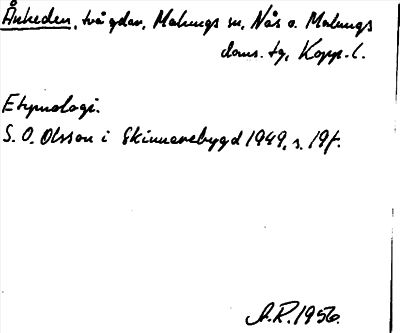 Ånheden, två gdar, Malungs sn, Nås o. Malungs
doms. tg, Kopp. l.
Etymologi.
S. O. Olsson i Skinnarebygd 1949, s. 19f.
A.R. 1956.